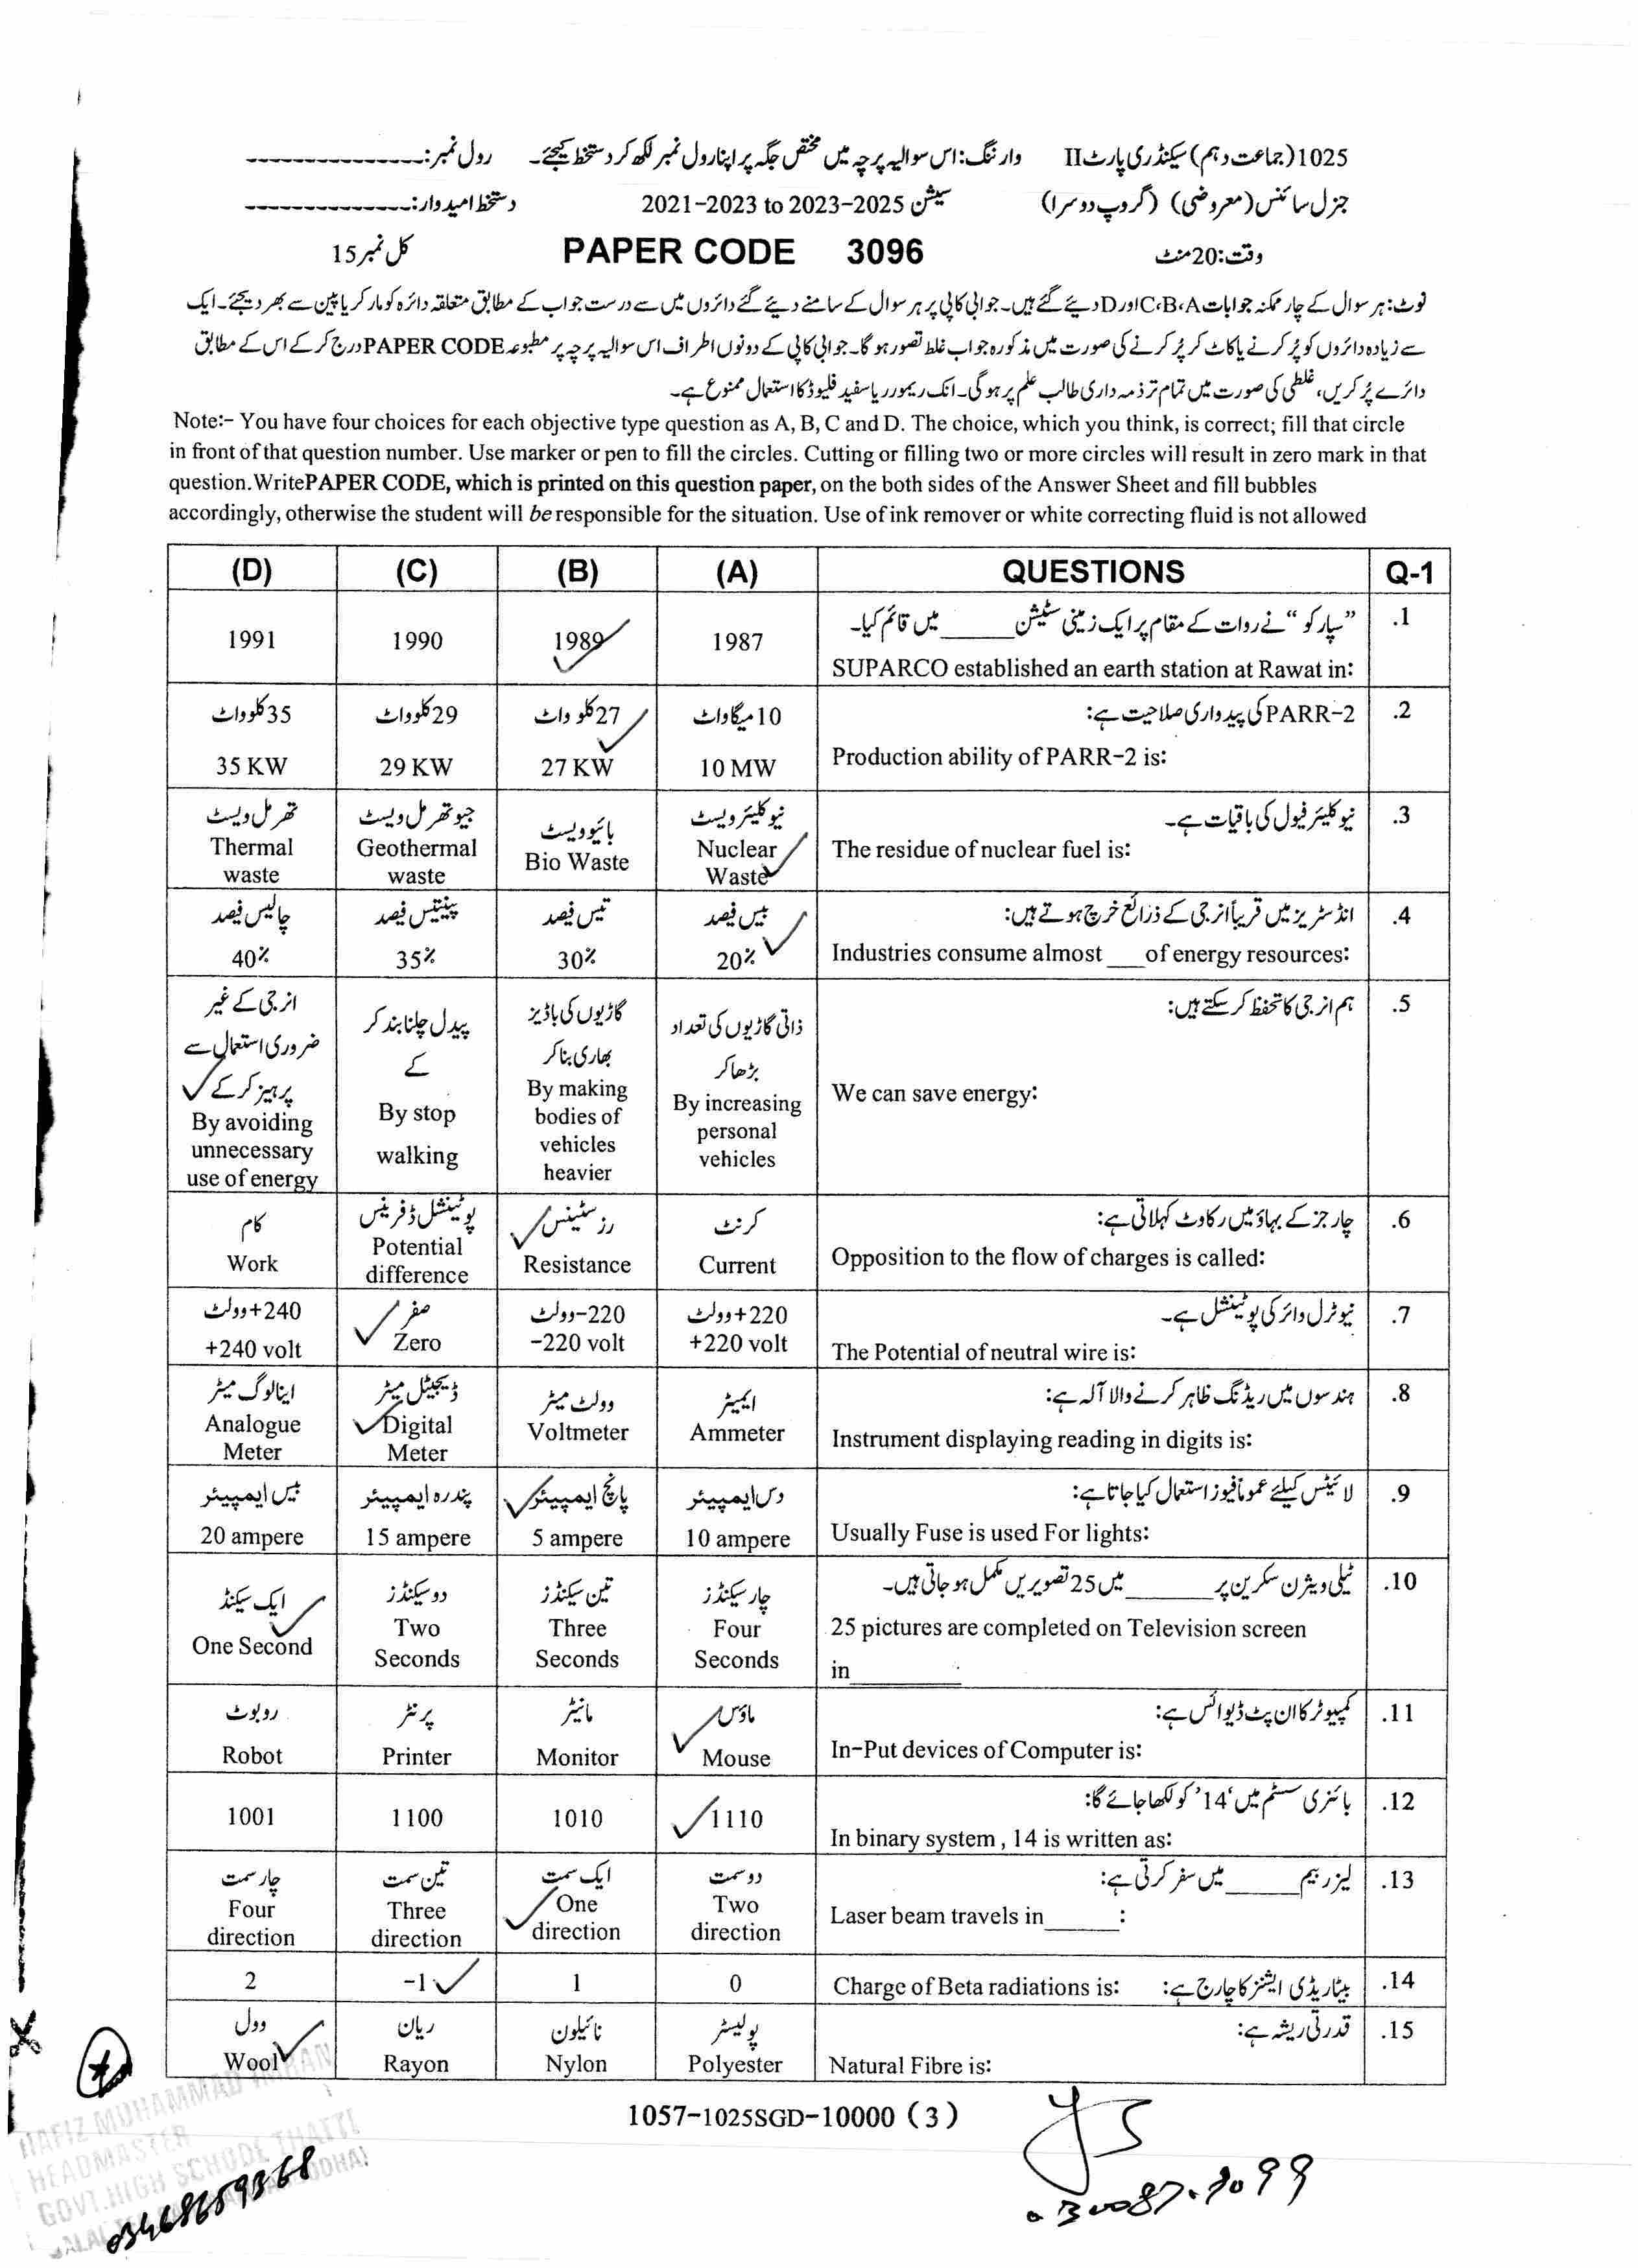 1025 (جماعت دہم) سیکنڈری پارٹ II وارننگ: اس سوالیہ پرچہ میں مختص جگہ پر اپنا رول نمبر لکھ کر دستخط کیجئے۔ رول نمبر:
جنرل سائنس (معروضی) (گروپ دوسرا) سیشن 2021-2023 to 2023-2025 دستخط امیدوار:
وقت: 20 منٹ PAPER CODE 3096 کل نمبر 15
نوٹ: ہر سوال کے چار ممکنہ جوابات C،B،A اور D دیئے گئے ہیں۔ جوابی کاپی پر ہر سوال کے سامنے دیئے گئے دائروں میں سے درست جواب کے مطابق متعلقہ دائرہ کو مارکر یا پین سے بھر دیجئے۔ ایک
سے زیادہ دائروں کو پُر کرنے یا کاٹ کر پُر کرنے کی صورت میں مذکورہ جواب غلط تصور ہو گا۔ جوابی کاپی کے دونوں اطراف اس سوالیہ پرچہ پر مطبوعہ PAPER CODE درج کر کے اس کے مطابق
دائرے پُر کریں، غلطی کی صورت میں تمام تر ذمہ داری طالب علم پر ہو گی۔ انک ریمور ریا سفید فلیوڈ کا استعمال ممنوع ہے۔
Note:- You have four choices for each objective type question as A, B, C and D. The choice, which you think, is correct; fill that circle
in front of that question number. Use marker or pen to fill the circles. Cutting or filling two or more circles will result in zero mark in that
question.WritePAPER CODE, which is printed on this question paper, on the both sides of the Answer Sheet and fill bubbles
accordingly, otherwise the student will be responsible for the situation. Use of ink remover or white correcting fluid is not allowed
(D) (C) (B) (A) QUESTIONS Q-1
.1 ”سپارکو“ نے روات کے مقام پر ایک زمینی سٹیشن _____ میں قائم کیا۔
SUPARCO established an earth station at Rawat in:
1991 1990 1989 1987
.2 PARR-2 کی پیداواری صلاحیت ہے:
35کلوواٹ 29کلوواٹ 27کلو واٹ 10میگاواٹ
Production ability of PARR-2 is:
35 KW 29 KW 27 KW 10 MW
.3 نیوکلیئر فیول کی باقیات ہے۔
تھرمل ویسٹ جیوتھرمل ویسٹ بائیوویسٹ نیوکلیئر ویسٹ
The residue of nuclear fuel is:
Thermal waste Geothermal waste Bio Waste Nuclear Waste
.4 انڈسٹریز میں قریباً انرجی کے ذرائع خرچ ہوتے ہیں:
چالیس فیصد پینتیس فیصد تیس فیصد بیس فیصد
Industries consume almost ___ of energy resources:
40% 35% 30% 20%
.5 ہم انرجی کا تحفظ کر سکتے ہیں:
انرجی کے غیر ضروری استعمال سے پرہیز کر کے پیدل چلنا بند کر کے گاڑیوں کی باڈیز بھاری بنا کر ذاتی گاڑیوں کی تعداد بڑھا کر
We can save energy:
By avoiding unnecessary use of energy By stop walking By making bodies of vehicles heavier By increasing personal vehicles
.6 چارجز کے بہاؤ میں رکاوٹ کہلاتی ہے:
کام پوٹینشل ڈفرینس رزسٹینس کرنٹ
Opposition to the flow of charges is called:
Work Potential difference Resistance Current
.7 نیوٹرل وائر کی پوٹینشل ہے۔
240+وولٹ صفر 220-وولٹ 220+وولٹ
The Potential of neutral wire is:
+240 volt Zero -220 volt +220 volt
.8 ہندسوں میں ریڈنگ ظاہر کرنے والا آلہ ہے:
اینالوگ میٹر ڈیجیٹل میٹر وولٹ میٹر ایمیٹر
Instrument displaying reading in digits is:
Analogue Meter Digital Meter Voltmeter Ammeter
.9 لائیٹس کیلئے عموماً فیوز استعمال کیا جاتا ہے:
بیس ایمپیئر پندرہ ایمپیئر پانچ ایمپیئر دس ایمپیئر
Usually Fuse is used For lights:
20 ampere 15 ampere 5 ampere 10 ampere
.10 ٹیلی ویژن سکرین پر ______ میں 25 تصویریں مکمل ہو جاتی ہیں۔
ایک سیکنڈ دو سیکنڈز تین سیکنڈز چار سیکنڈز
25 pictures are completed on Television screen
in________
One Second Two Seconds Three Seconds Four Seconds
.11 کمپیوٹر کا ان پٹ ڈیوائس ہے:
روبوٹ پرنٹر مانیٹر ماؤس
In-Put devices of Computer is:
Robot Printer Monitor Mouse
.12 بائنری سسٹم میں ’14‘ کو لکھا جائے گا:
In binary system , 14 is written as:
1001 1100 1010 1110
.13 لیزر بیم _____ میں سفر کرتی ہے:
چار سمت تین سمت ایک سمت دو سمت
Laser beam travels in______:
Four direction Three direction One direction Two direction
.14 بیٹا ریڈی ایشنز کا چارج ہے: Charge of Beta radiations is:
2 -1 1 0
.15 قدرتی ریشہ ہے:
وول ریان نائیلون پولیسٹر
Natural Fibre is:
Wool Rayon Nylon Polyester
1057-1025SGD-10000 (3)
HAFIZ MUHAMMAD IMRAN
HEADMASTER
GOVT.HIGH SCHOOL THATTI
03468659368